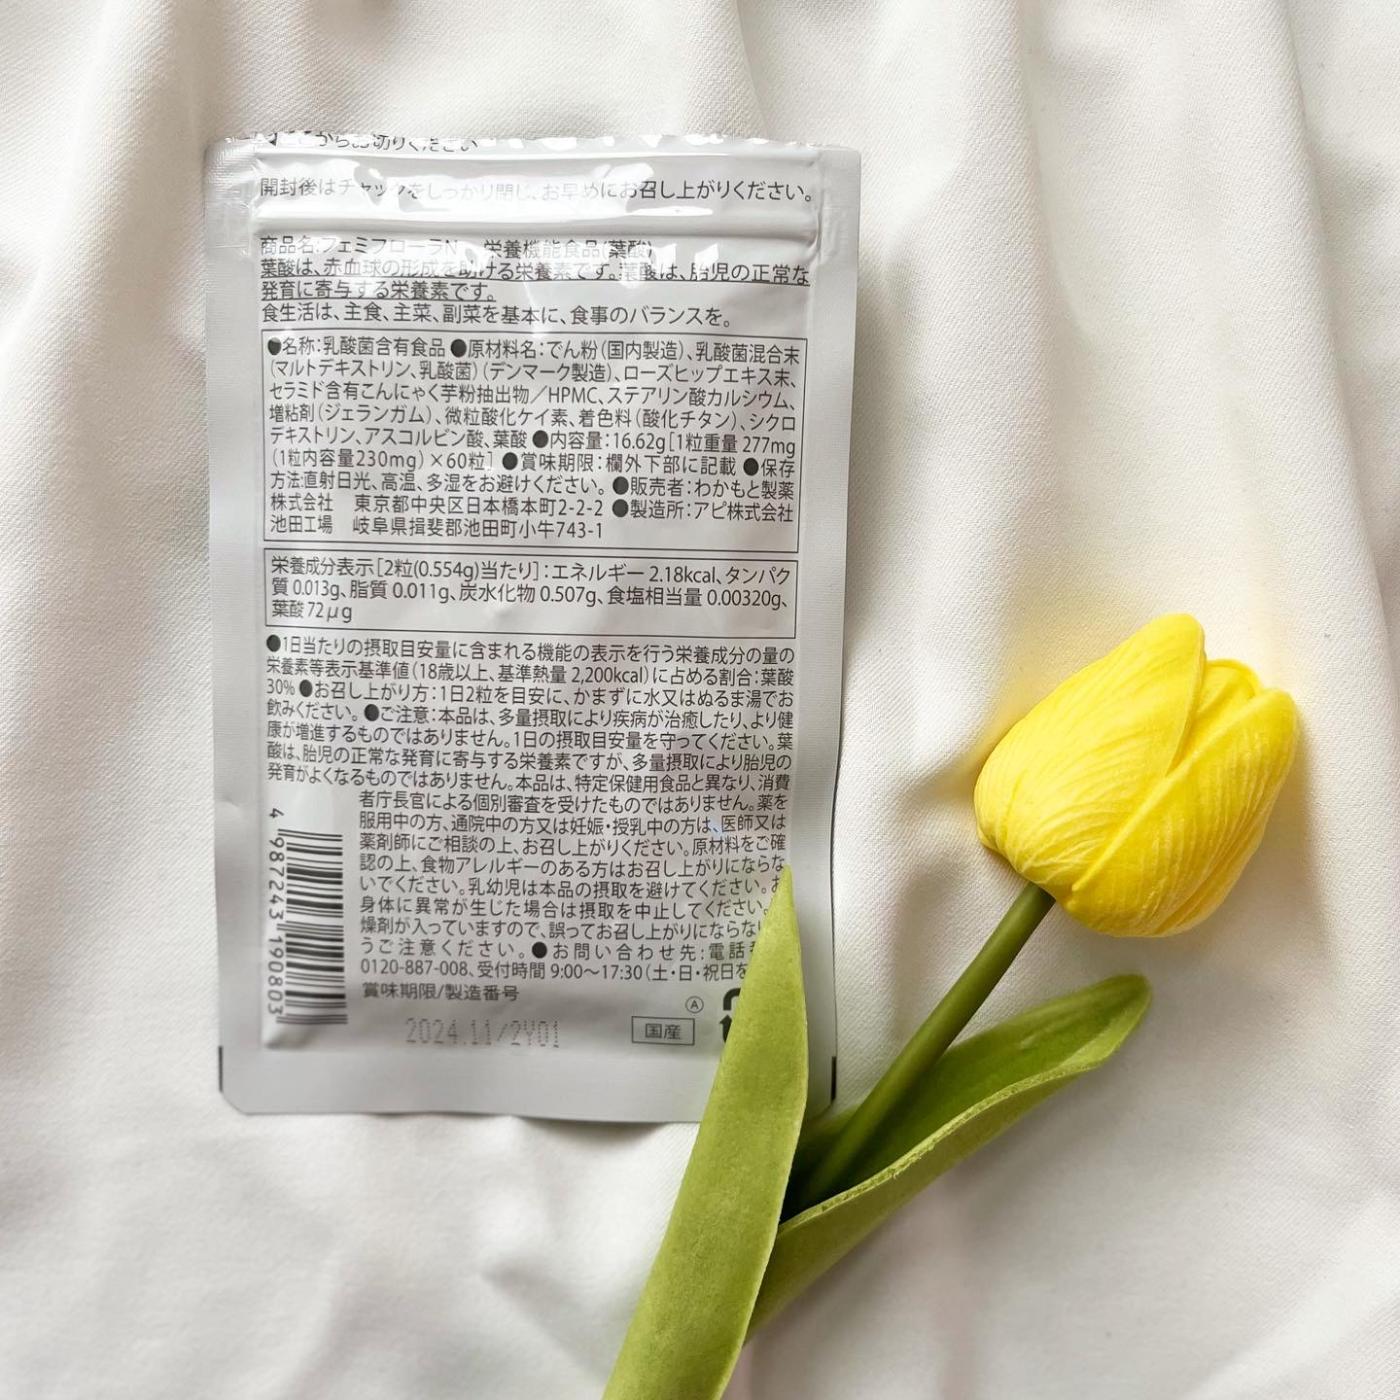 ここからお切りください
開封後はチャックをしっかり閉じ、お早めにお召し上がりください。
商品名:フェミフローラN 栄養機能食品(葉酸)
葉酸は、赤血球の形成を助ける栄養素です。葉酸は、胎児の正常な
発育に寄与する栄養素です。
食生活は、主食、主菜、副菜を基本に、食事のバランスを。
●名称:乳酸菌含有食品 ●原材料名:でん粉(国内製造)、乳酸菌混合末
(マルトデキストリン、乳酸菌)(デンマーク製造)、ローズヒップエキス末、
セラミド含有こんにゃく芋粉抽出物/HPMC、ステアリン酸カルシウム、
増粘剤(ジェランガム)、微粒酸化ケイ素、着色料(酸化チタン)、シクロ
デキストリン、アスコルビン酸、葉酸 ●内容量:16.62g[1粒重量 277mg
(1粒内容量230mg)×60粒] ●賞味期限:欄外下部に記載 ●保存
方法:直射日光、高温、多湿をお避けください。 ●販売者:わかもと製薬
株式会社 東京都中央区日本橋本町2-2-2 ●製造所:アピ株式会社
池田工場 岐阜県揖斐郡池田町小牛743-1
栄養成分表示[2粒(0.554g)当たり]:エネルギー 2.18kcal、タンパク
質 0.013g、脂質 0.011g、炭水化物 0.507g、食塩相当量 0.00320g、
葉酸 72μg
●1日当たりの摂取目安量に含まれる機能の表示を行う栄養成分の量の
栄養素等表示基準値(18歳以上、基準熱量 2,200kcal)に占める割合:葉酸
30% ●お召し上がり方:1日2粒を目安に、かまずに水又はぬるま湯でお
飲みください。 ●ご注意:本品は、多量摂取により疾病が治癒したり、より健
康が増進するものではありません。1日の摂取目安量を守ってください。葉
酸は、胎児の正常な発育に寄与する栄養素ですが、多量摂取により胎児の
発育がよくなるものではありません。本品は、特定保健用食品と異なり、消費
者庁長官による個別審査を受けたものではありません。薬を
服用中の方、通院中の方又は妊娠・授乳中の方は、医師又は
薬剤師にご相談の上、お召し上がりください。原材料をご確
認の上、食物アレルギーのある方はお召し上がりにならな
いでください。乳幼児は本品の摂取を避けてください。お
身体に異常が生じた場合は摂取を中止してください。
燥剤が入っていますので、誤ってお召し上がりにならない
うご注意ください。 ●お問い合わせ先:電話
0120-887-008、受付時間 9:00〜17:30(土・日・祝日を
賞味期限/製造番号
2024.11/2Y01
Ⓐ
国産
4 987243 190803